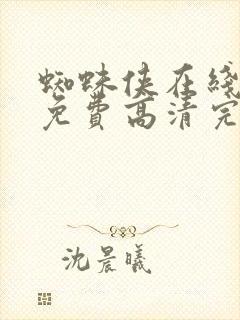 蜘蛛侠在线
免费高清完
沈晨曦